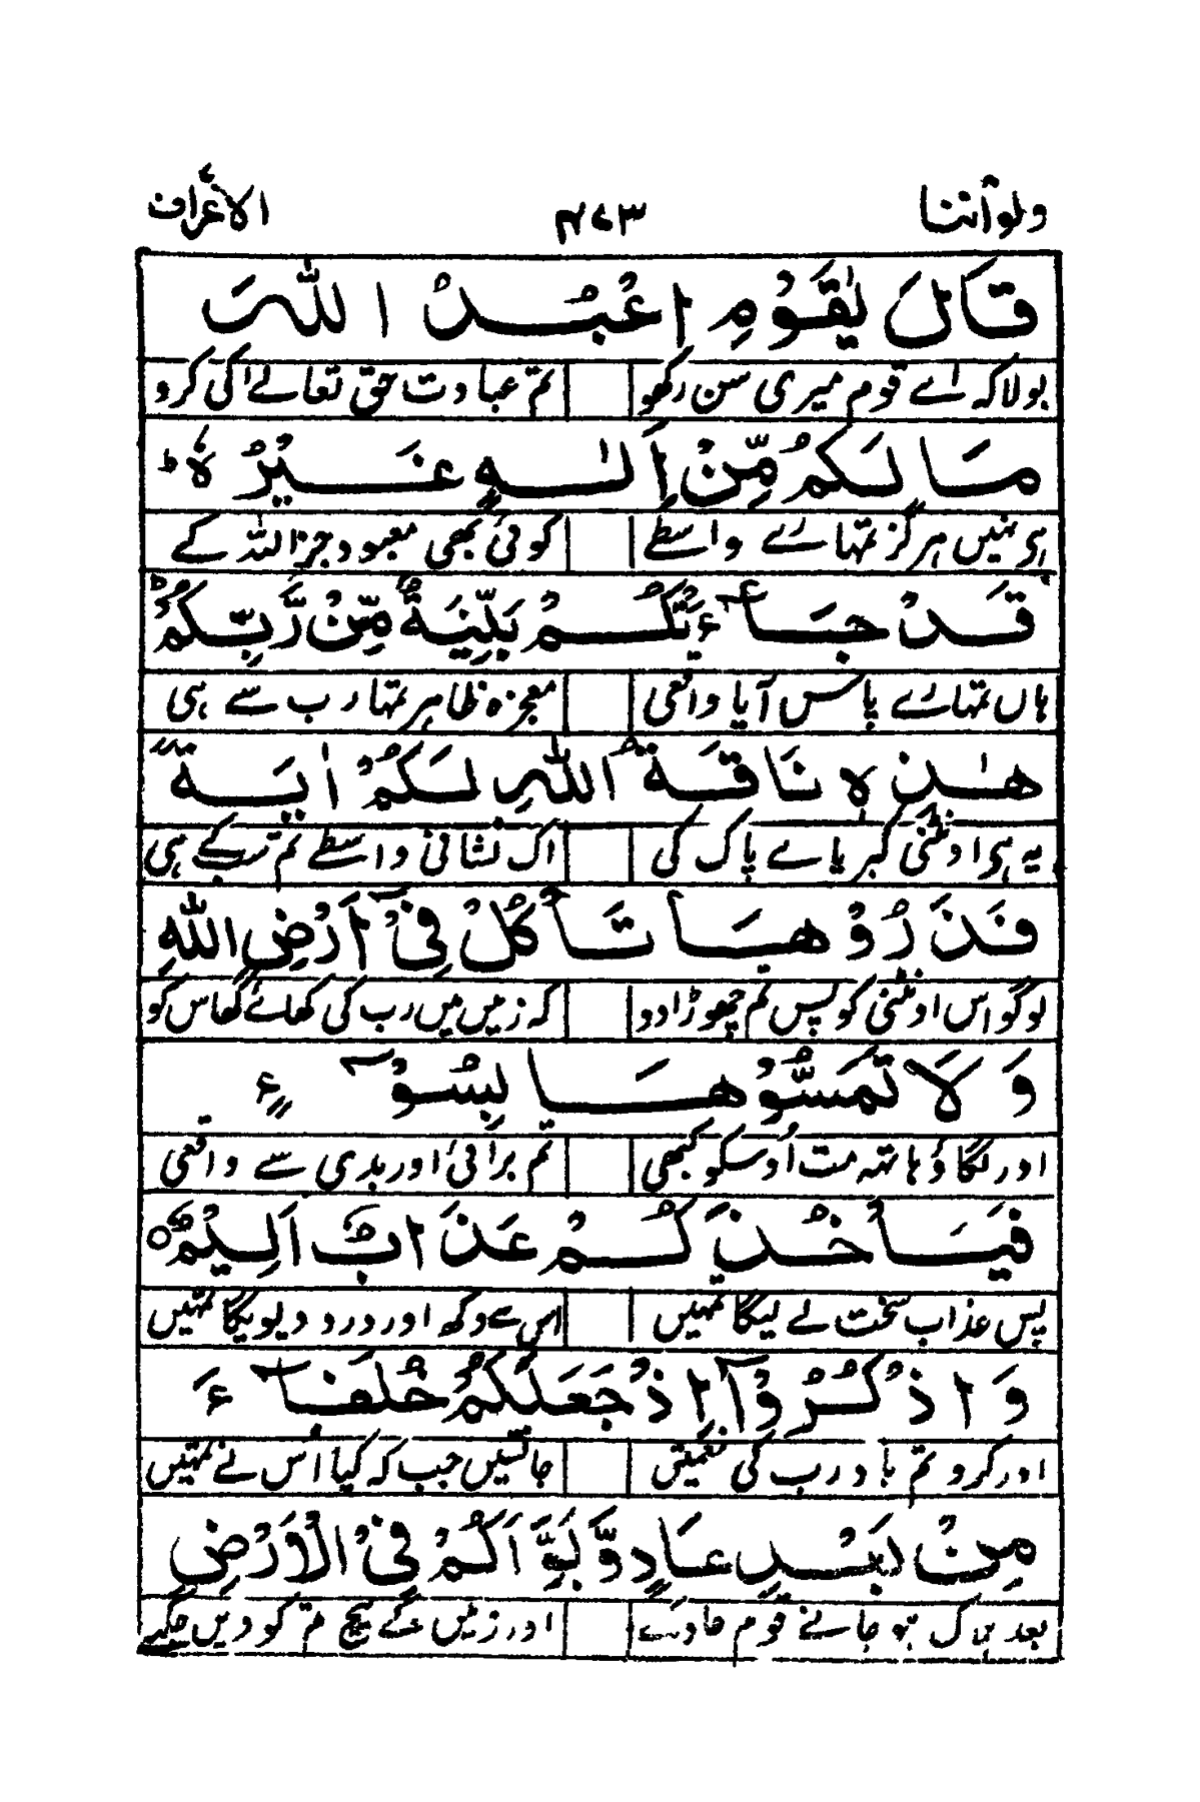 ولو أننا ۴۷۳ الاعراف
قَالَ يٰقَوْمِ اعْبُدُ اللّٰهَ
بولا کہ اے قوم میری سن رکھو تم عبادت حق تعالےٰ کی کرو
مَا لَكُمْ مِّنْ اِلٰهٍ غَيْرُهٗ ط
ہی نہیں ہرگز تمہارے واسطے کوئی بھی معبود جز اللہ کے
قَدْ جَآءَتْكُمْ بَيِّنَةٌ مِّنْ رَّبِّكُمْ ط
ہاں تمہارے پاس آیا واقعی معجزہ ظاہر تمہارے رب سے ہی
هٰذِهٖ نَاقَةُ اللّٰهِ لَكُمْ اٰيَةً
یہ ہی اونٹنی کبریا ے پاک کی اک نشانی واسطے تم سب کے ہی
فَذَرُوْهَا تَأْكُلْ فِيْٓ اَرْضِ اللّٰهِ
لوگو اس اونٹنی کو پس تم چھوڑ ادو کہ زمیں میں رب کی کھائے گھاس کو
وَلَا تَمَسُّوْهَا بِسُوْٓءٍ
اور لگاؤ ہاتھ مت اُوسکو کبھی تم برائی اور بدی سے واقعی
فَيَأْخُذَكُمْ عَذَابٌ اَلِيْمٌ ○
پس عذاب سخت لے لیگا تمہیں اس سے دکھ اور درد دیویگا تمہیں
وَاذْكُرُوْٓا اِذْ جَعَلَكُمْ خُلَفَآءَ
اور کرو تم یاد رب کی نعمتیں جانشیں جب کہ کیا اُس نے تمہیں
مِنْۢ بَعْدِ عَادٍ وَّبَوَّاَكُمْ فِي الْاَرْضِ
بعد ہلاک ہو جانے قوم عاد کے اور زمیں کے بیچ تم کو دیں جگہ